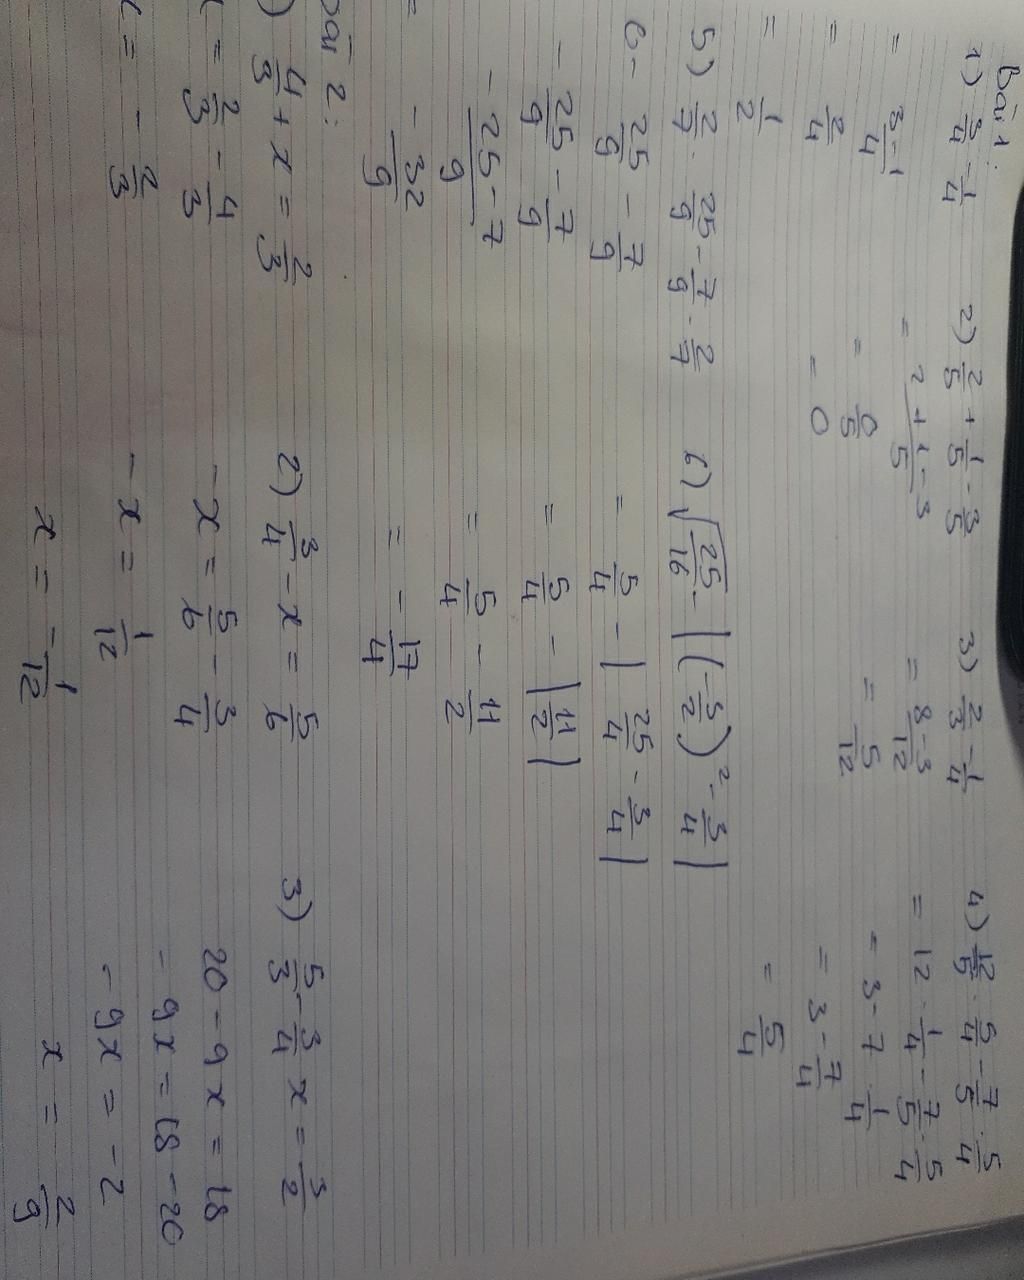 Bài 1:
1) 3/4 - 1/4
= (3-1)/4
= 2/4
= 1/2
2) 2/5 + 1/5 - 3/5
= (2+1-3)/5
= 0/5
= 0
3) 2/3 - 1/4
= (8-3)/12
= 5/12
4) 12/5 . 5/4 - 7/5 . 5/4
= 12 . 1/4 - 7/5 . 5/4
= 3 - 7 . 1/4
= 3 - 7/4
= 5/4
5) 2/7 . 25/9 - 7/9 . 2/7
6 - 25/9 - 7/9
- 25/9 - 7/9
- (25-7)/9
= - 32/9
6) √(25/16) - |(-3/2)² - 3/4|
= 5/4 - |25/4 - 3/4|
= 5/4 - |11/2|
= 5/4 - 11/2
= - 17/4
Bài 2:
) 4/3 + x = 2/3
x = 2/3 - 4/3
x = - 2/3
2) 3/4 - x = 5/6
- x = 5/6 - 3/4
- x = 1/12
x = - 1/12
3) 5/3 - 3/4 x = 3/2
20 - 9x = 18
- 9x = 18 - 20
- 9x = - 2
x = 2/9